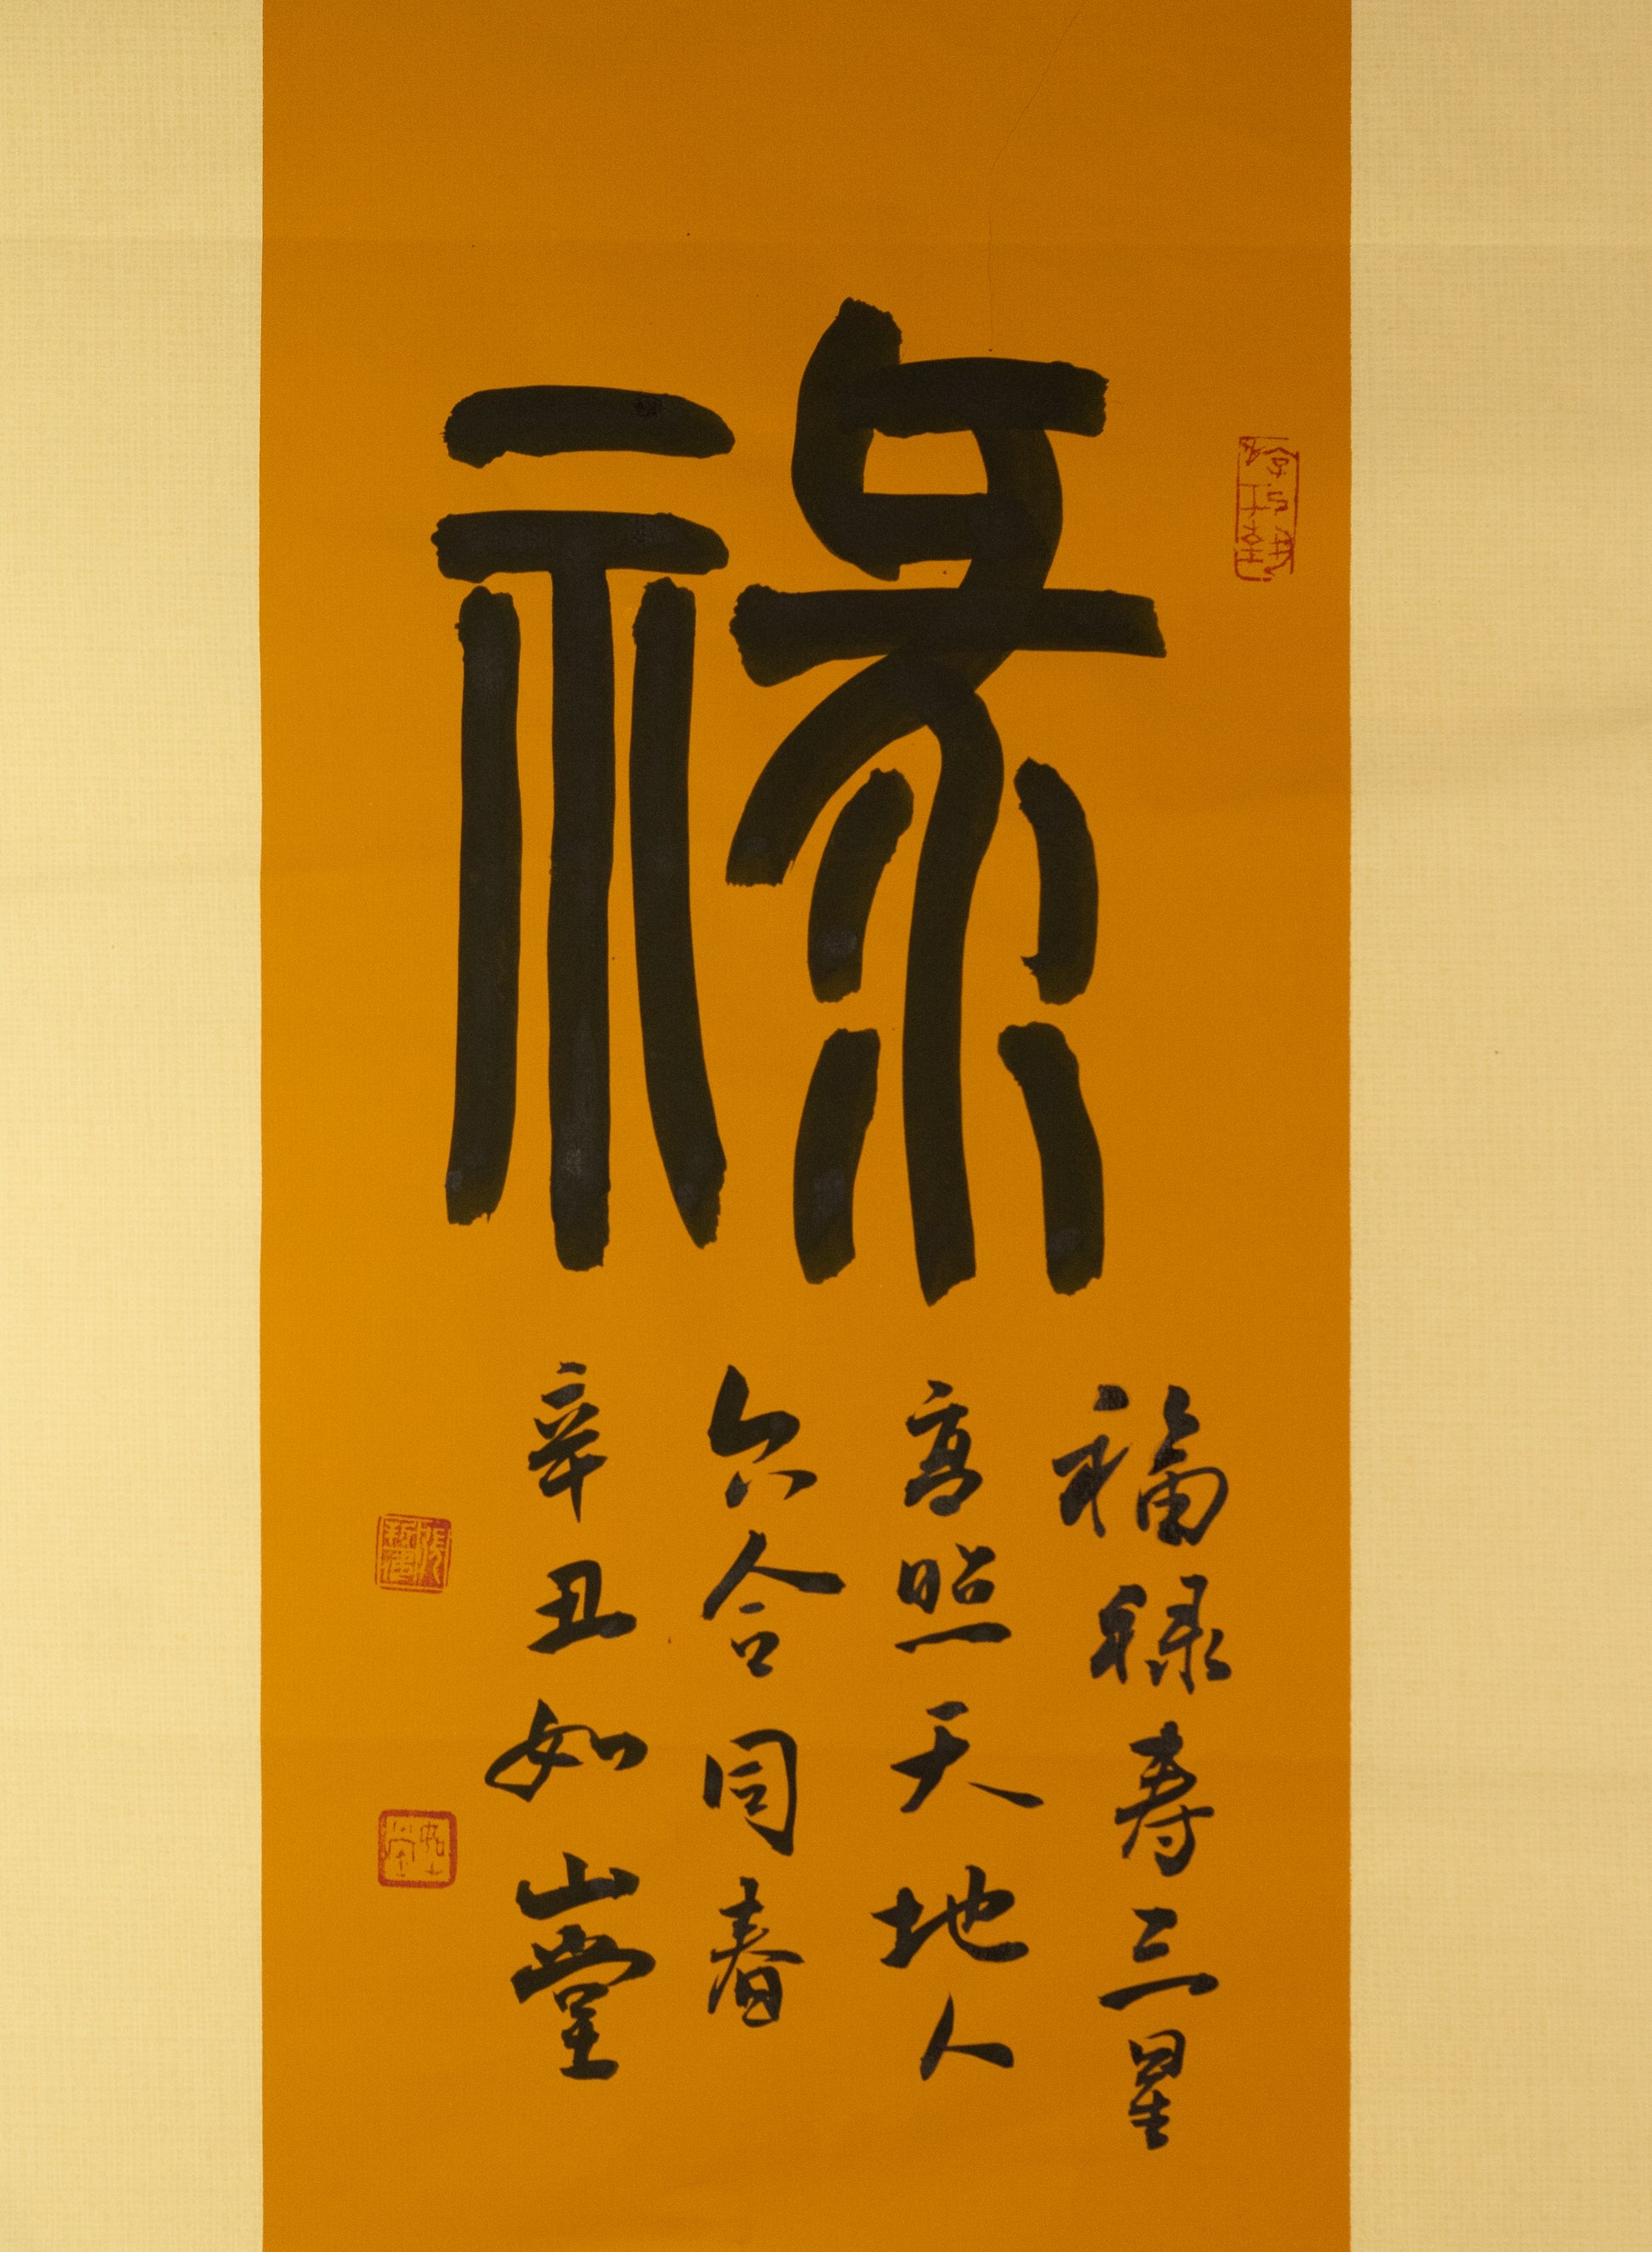 禄
福禄寿三星
高照天地人
六合同春
辛丑如山堂